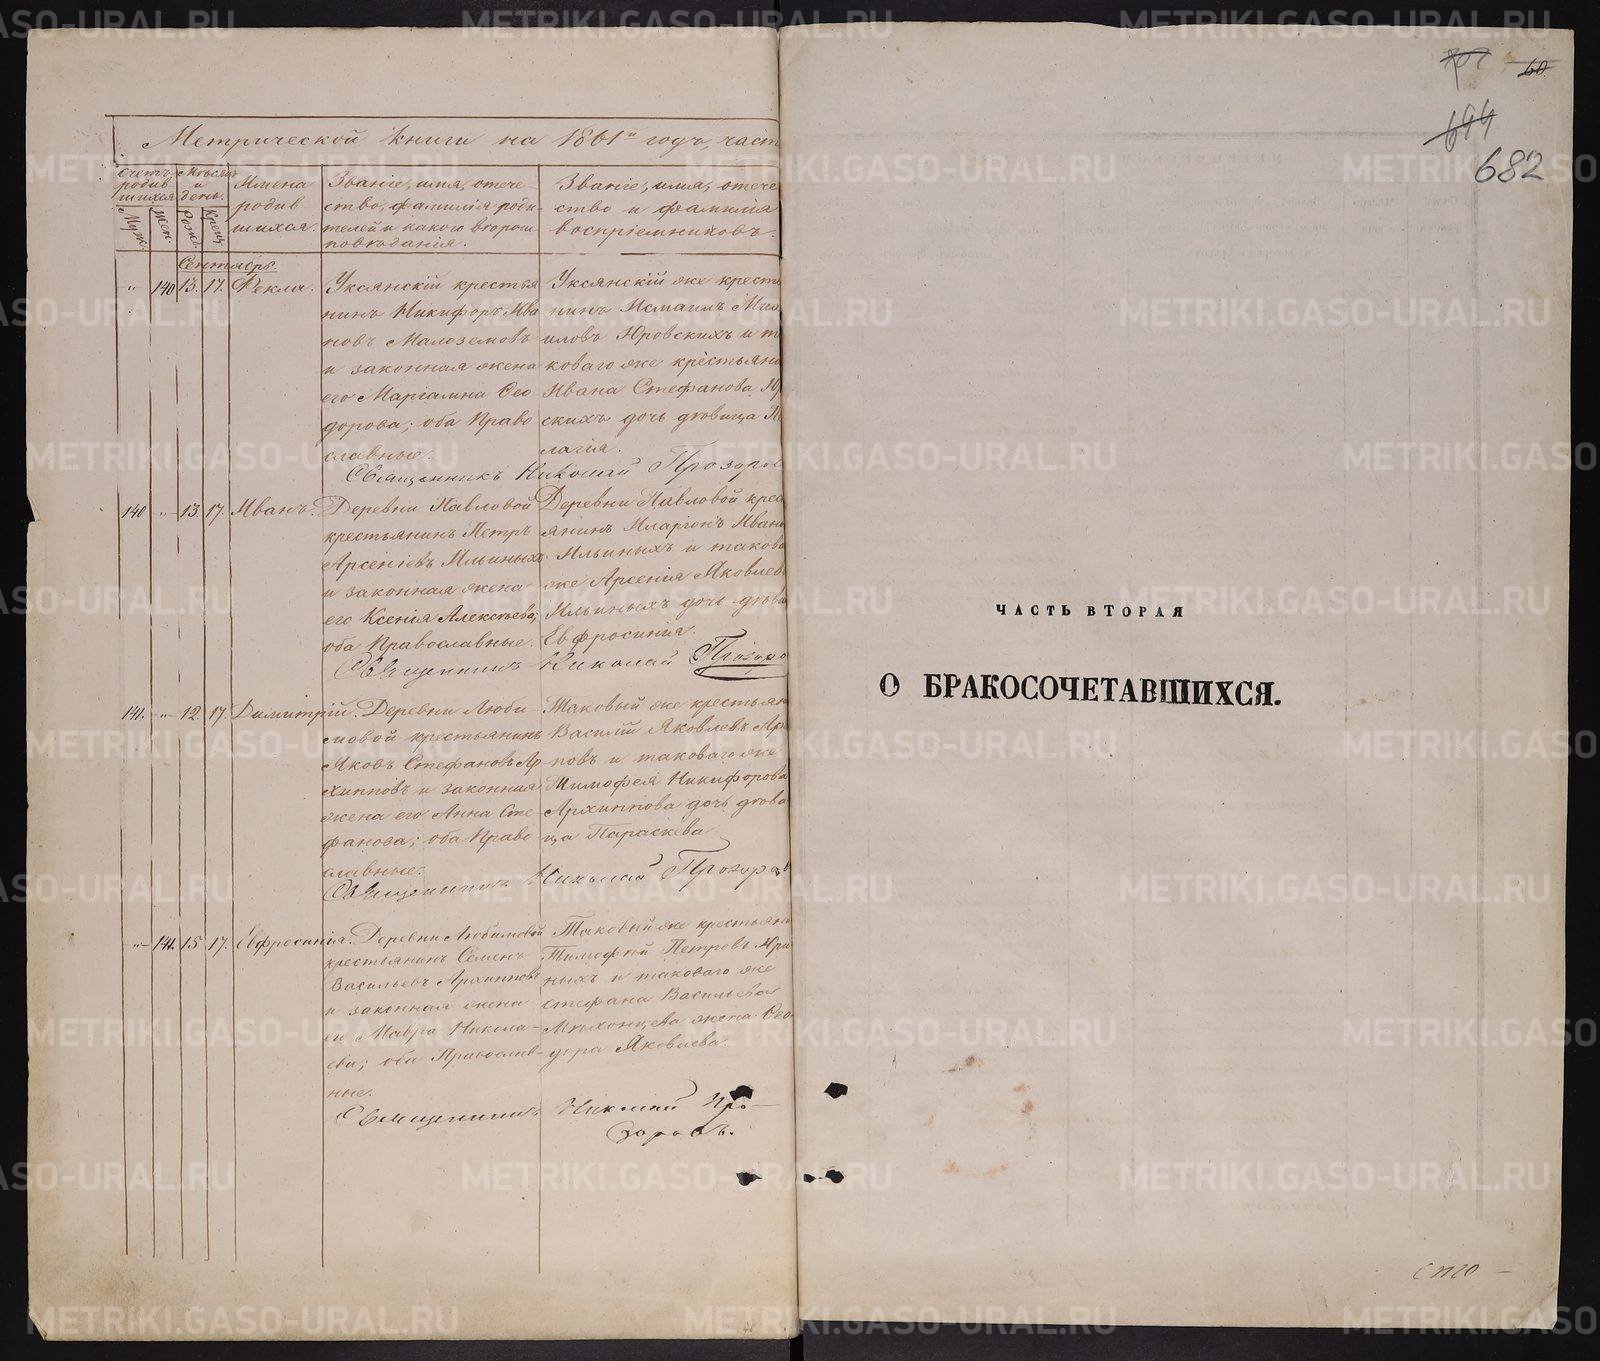 Метрической книги на 1861й годъ, част
Счетъ родив шихся
Муж.
Жен.
Мѣсяцъ и день.
Рожд.
Крещ.
Имена родив шихся.
Званіе, имя, отече-
ство, фамилія роди-
телей и какого вѣроис-
повѣданія.
Званіе, имя, отече
ство и фамилія
воспріемниковъ.
Сентябрь.
" 140 13. 17. Ѳекла.
Уксянскій крестья
нинъ Никифоръ Ива
новъ Малоземовъ
и законная жена
его Маріамна Ѳео
дорова; оба Право
славные.
Уксянскій же крестья
нинъ Исмаилъ Миха
иловъ Юровскихъ и т
коваго же крестьяни
Ивана Стефанова Ю
скихъ дочь дѣвица П
лагія.
Священникъ Николай Прозоров
140 " 13. 17. Иванъ.
Деревни Павловой
крестьянинъ Петръ
Арсеніевъ Ильиныхъ
и законная жена
его Ксенія Алексѣева;
оба Православные.
Деревни Павловой крес
янинъ Иларіонъ Ивано
Ильиныхъ и такова
же Арсенія Яковлев
Ильиныхъ дочь дѣви
Евфросинія.
Священникъ Николай Прозоро
141. " 12. 17. Димитрій.
Деревни Люби
мовой крестьянинъ
Яковъ Стефановъ Ар
хипповъ и законная
жена его Анна Сте
фанова; оба Право
славные.
Таковый же крестьян
Василій Яковлевъ Архи
повъ и таковаго же
Тимофея Никифорова
Архиппова дочь дѣви
ца Параскева
Священникъ Николай Прозоровъ
" 141. 15. 17. Евфросинія.
Деревни Любимовой
крестьянинъ Семенъ
Васильевъ Архипповъ
и законная жена
его Мавра Никола-
ева; оба Православ-
ные.
Таковый же крестьяни
Тимофей Петровъ
ныхъ и таковаго же
Стефана Васильева
жена Ѳео
дора Яковлева.
Священникъ Николай Про-
зоровъ.
60
694
682
ЧАСТЬ ВТОРАЯ
О БРАКОСОЧЕТАВШИХСЯ.
METRIKI.GASO-URAL.RU